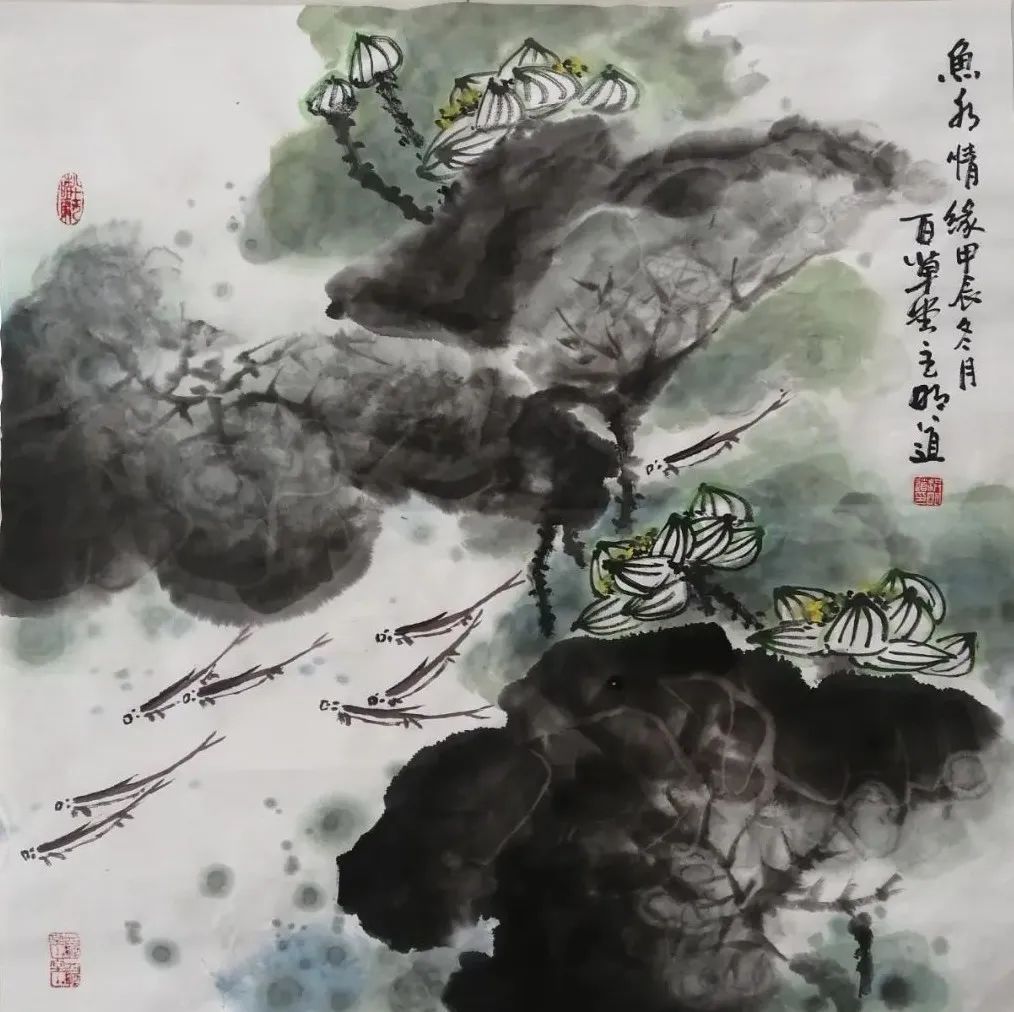 魚水情緣甲辰冬月
百草堂主明道